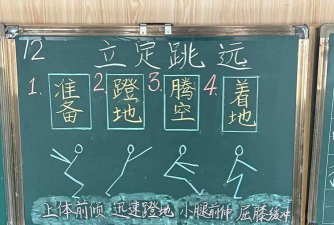 72 立定跳远
1. 准备 2 蹬地 3. 腾空 4. 着地
上体前倾 迅速蹬地 小腿前伸 屈膝缓冲